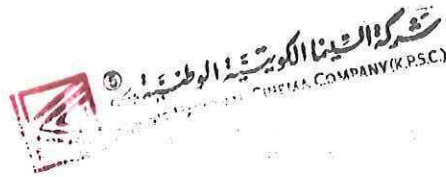 شركة السينما الكويتية الوطنية
CINEMA COMPANY (K.P.S.C.)